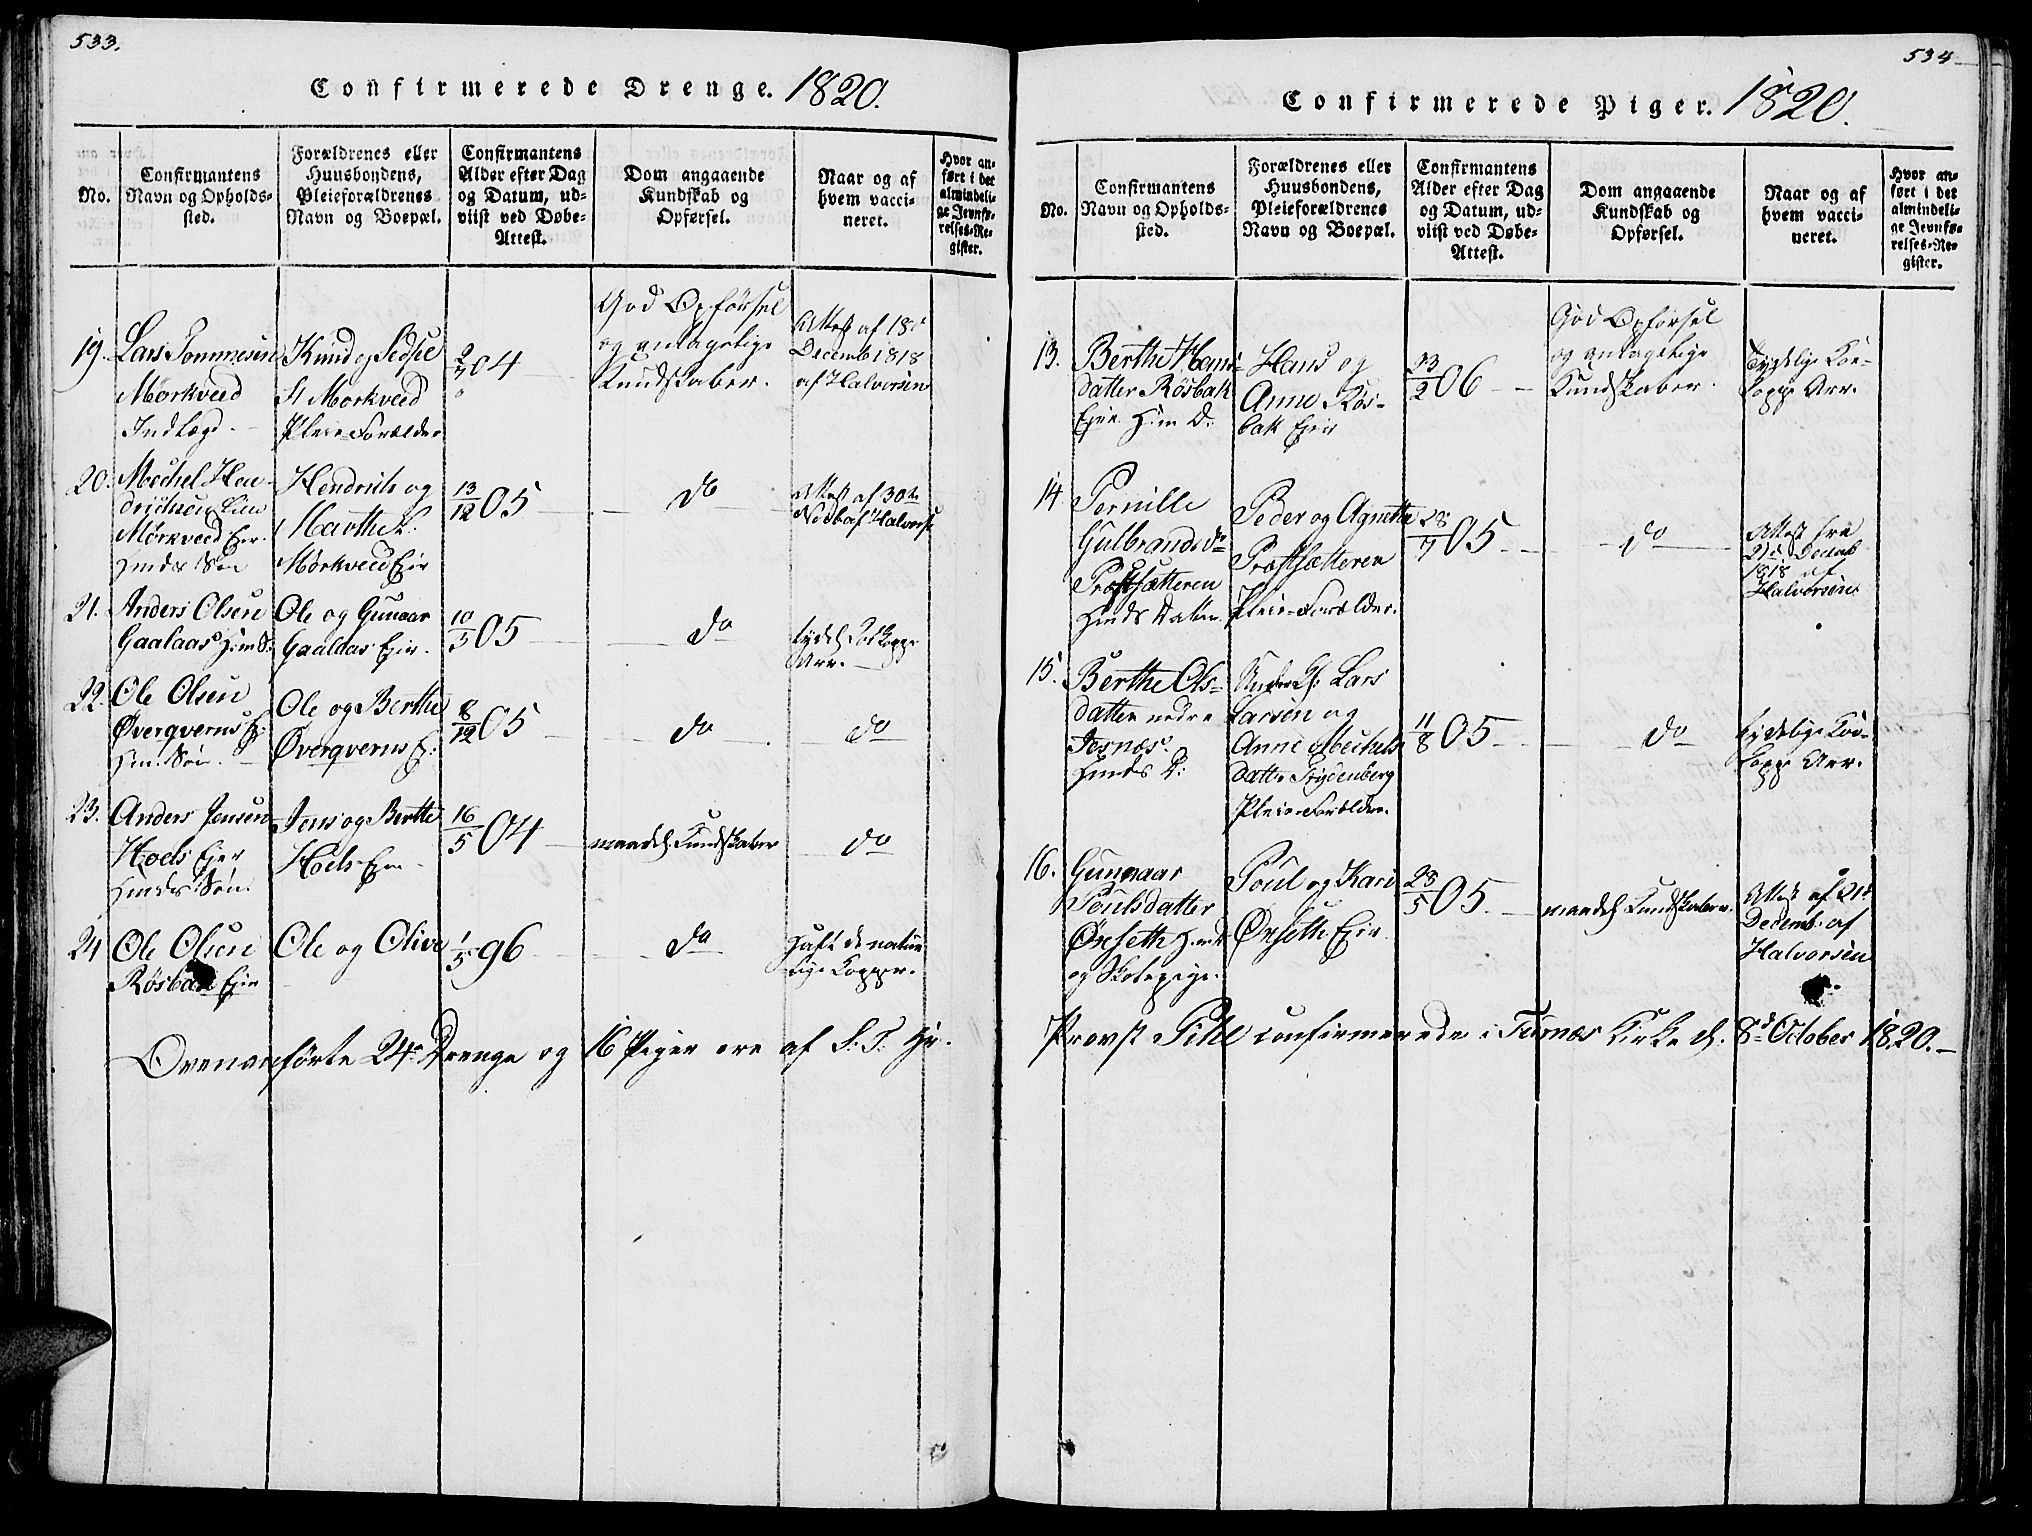 533.
Confirmerede Drenge. 1820.
No.
Confirmantens
Navn og Opholds-
sted.
Forældrenes eller
Huusbondens,
Pleieforældrenes
Navn og Boepæl.
Confirmantens
Alder efter Dag
og Datum, ud-
viist ved Døbe-
Attest.
Dom angaaende
Kundskab og
Opførsel.
Naar og af
hvem vacci-
neret.
Hvor an-
ført i det
almindeli-
ge Jevnfø-
relses-Re-
gister.
19.
Lars
Mörkveed
Indlagd.
Knud og
Morkveed
Pleie-Forælder
04
God Opförsel
og antagelige
Kundskaber.
Attest af 18d
Decemb 1818
af Halvorsen
20.
Mechel Hen-
drichsen
Mørkveed Eier.
Hendrich og
Marthe
Mørkveed Eier
13/12 05
do
Attest af 30te
af Halvors
21.
Anders Olsen
Gaalaas
Ole og Gunaar
Gaalaas Eier.
10/5 05
do
tydel Kokoppe
Arr.
22.
Ole Olsen
Øverqvern
Søn.
Ole og Berthe
Øverqvern E:
8/12 05
do
do
23.
Anders Jensen
Hoels Eier
Søn.
Jens og Berthe
Hoels Eier
16/5 04
maadel Kundskaber
do
24
Ole Olsen
Røsbak Eier
Ole og Olive
1/5 96
do
haft de natur
lige Kopper.
Ovenanførte 24 Drenge og 16 Piger ere af S. T. Hr.
534
Confirmerede Piger. 1820.
No.
Confirmantens
Navn og Opholds-
sted.
Forældrenes eller
Huusbondens,
Pleieforældrenes
Navn og Boepæl.
Confirmantens
Alder efter Dag
og Datum, ud-
viist ved Døbe-
Attest.
Dom angaaende
Kundskab og
Opførsel.
Naar og af
hvem vacci-
neret.
Hvor an-
ført i det
almindeli-
ge Jevnfø-
relses-Re-
gister.
13.
Berthe Hans-
datter Røsbak
Eier
Hans og
Anne Røs-
bak Eier
23/2 06
God Opförsel
og antagelige
Kundskaber.
Tydelige Koe-
koppe Arr.
14
Pernille
Gulbrandsdr
Præstsætteren
Peder og Agnethe
Præstsætteren
Pleie-Forælder.
28/7 05
do
Attest fra
Decemb
1818 af
Halvorsen
15.
Berthe Ols-
datter nedre
Jesnæs
Under Of: Lars
Larsen og
Anne Mechels
datter Frydenberg
Pleie-Forældre.
11/8 05
do
tydelige Koe-
koppe Arr.
16.
Gunnaar
Poulsdatter
Ørseth
og Skolepige.
Poul og Kari
Ørseth Eier
23/5 05
maadel Kundskaber.
Attest af 21d
Decemb. af
Halvorsen
Provst Pihl confirmerede i Furnæs Kirke d. 8d October 1820.